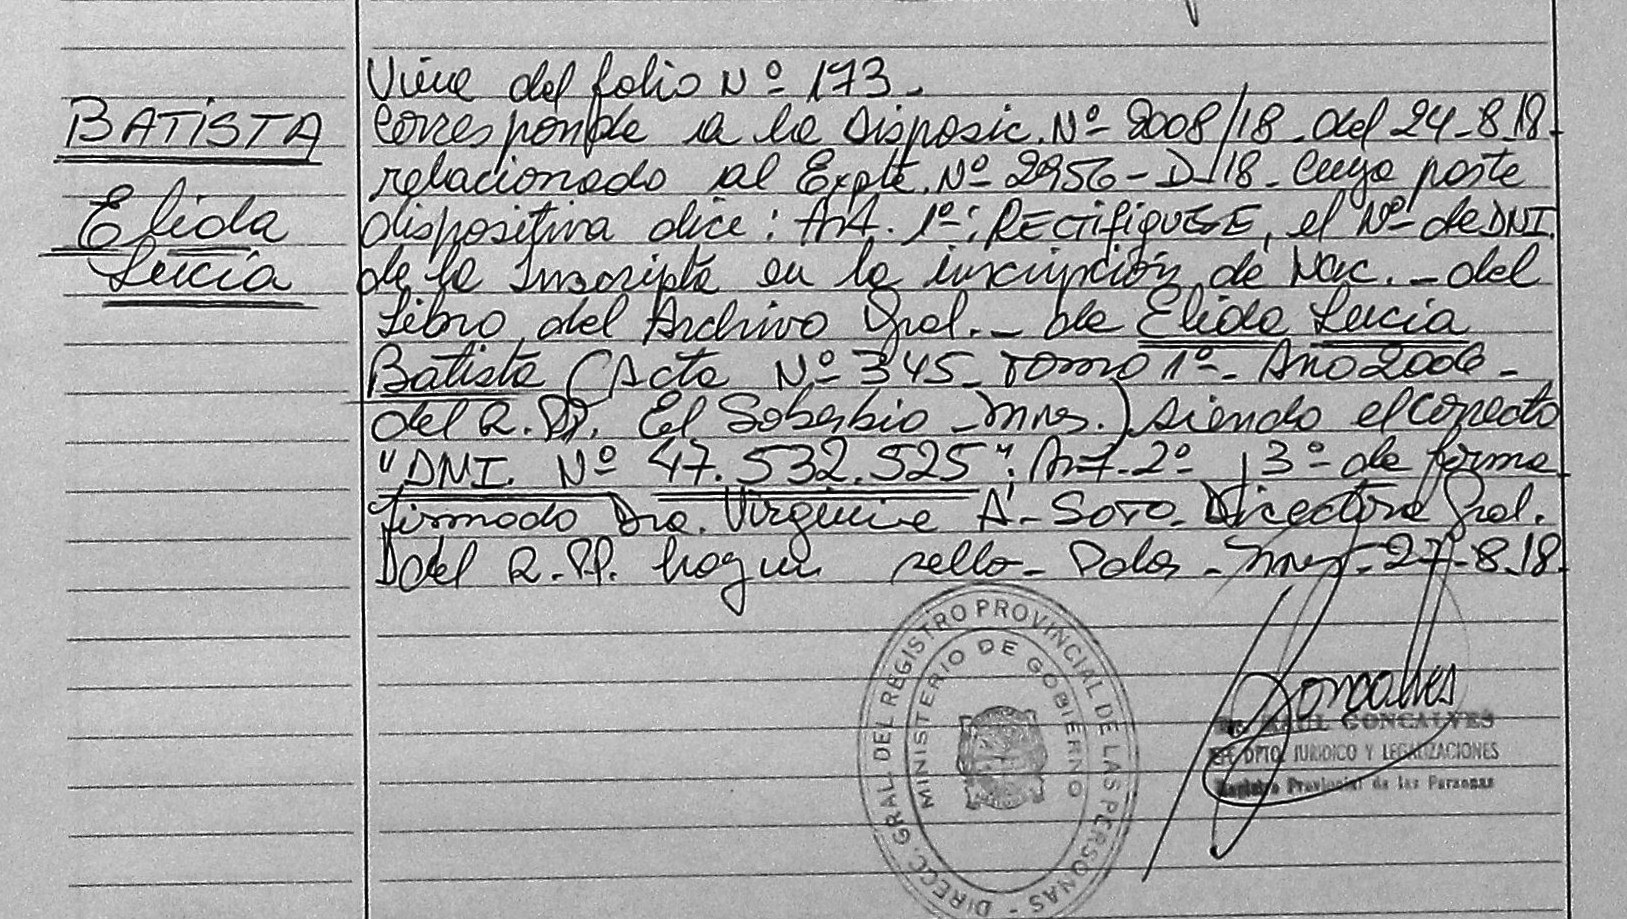 BATISTA
Elida
Lucia
Viene del folio Nº 173.
Corresponde a la Disposic. Nº 2008/18 del 24-8-18.
relacionado al Expte. Nº 2956-D-18. Cuya parte
dispositiva dice: Art. 1º: RECTIFIQUESE, el Nº de DNI.
de la Inscripta en la inscripción de Nac. - del
Libro del Archivo Gral. - de Elida Lucia
Batista (Acta Nº 345 - Tomo 1º - Año 2006 -
del R.PP. El Soberbio - Mnes.) siendo el correcto
"DNI. Nº 47.532.525"; Art. 2º y 3º de forma.
Firmado Dra. Virginia A. Soto. Directora Gral.
del R.PP. hay un sello - Pdas - Mnes - 27-8-18.
DIRECC. GRAL. DEL REGISTRO PROVINCIAL DE LAS PERSONAS -
MINISTERIO DE GOBIERNO
Goncalves
RAUL GONCALVES
DPTO. JURIDICO Y LEGALIZACIONES
Registro Provincial de las Personas